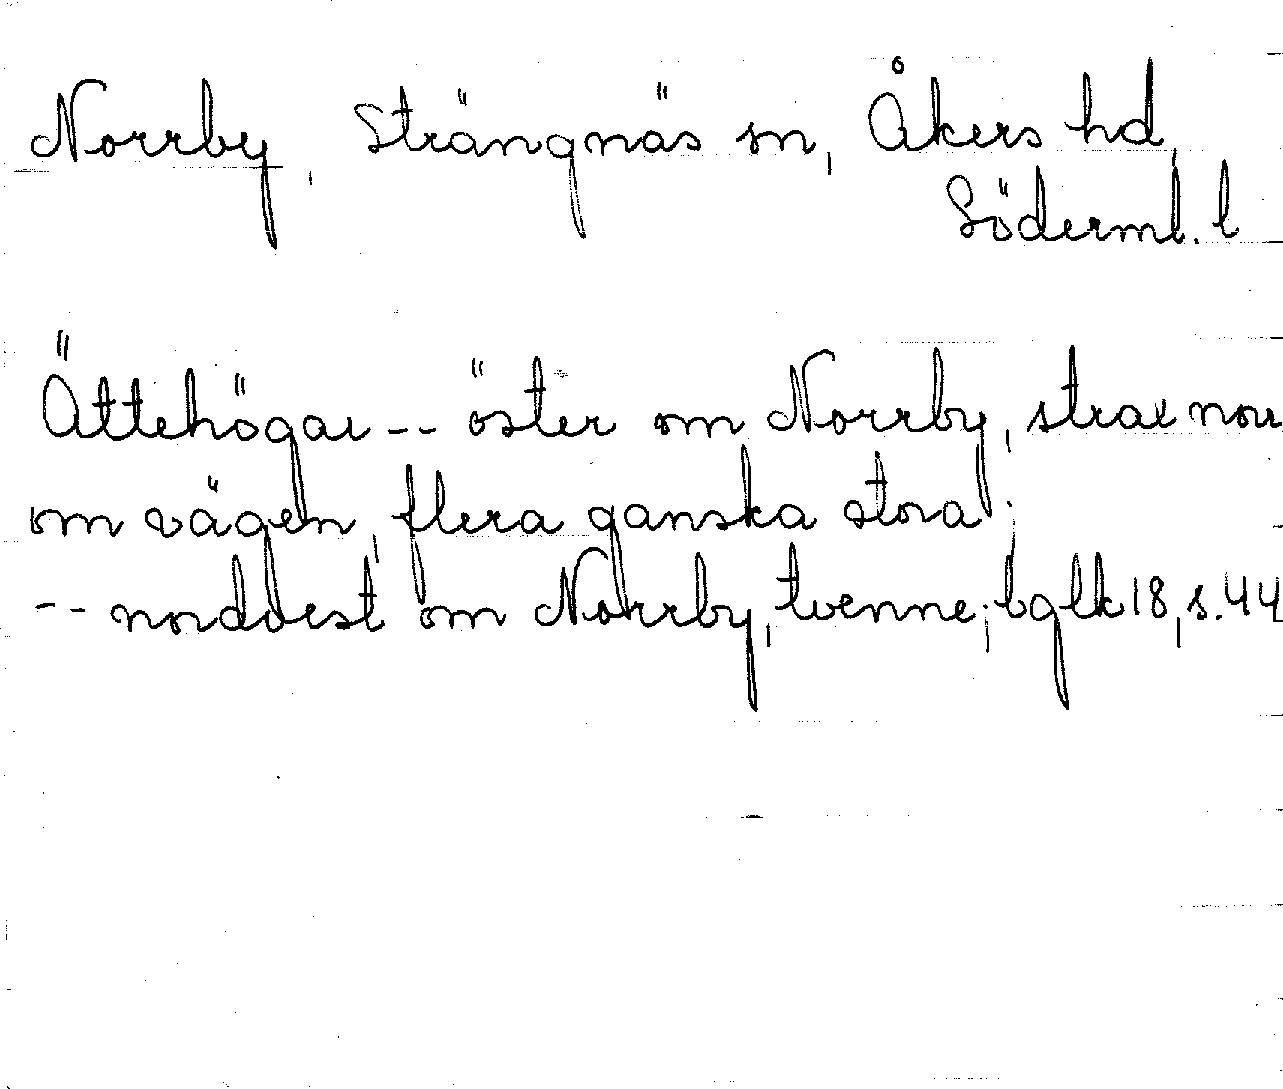 Norrby, Strängnäs sn, Åkers hd,
Söderml. l
Ättehögar -- öster om Norrby, strax norr
om vägen, flera ganska stora;
-- nordvest om Norrby, tvenne; bglk 18, s. 44